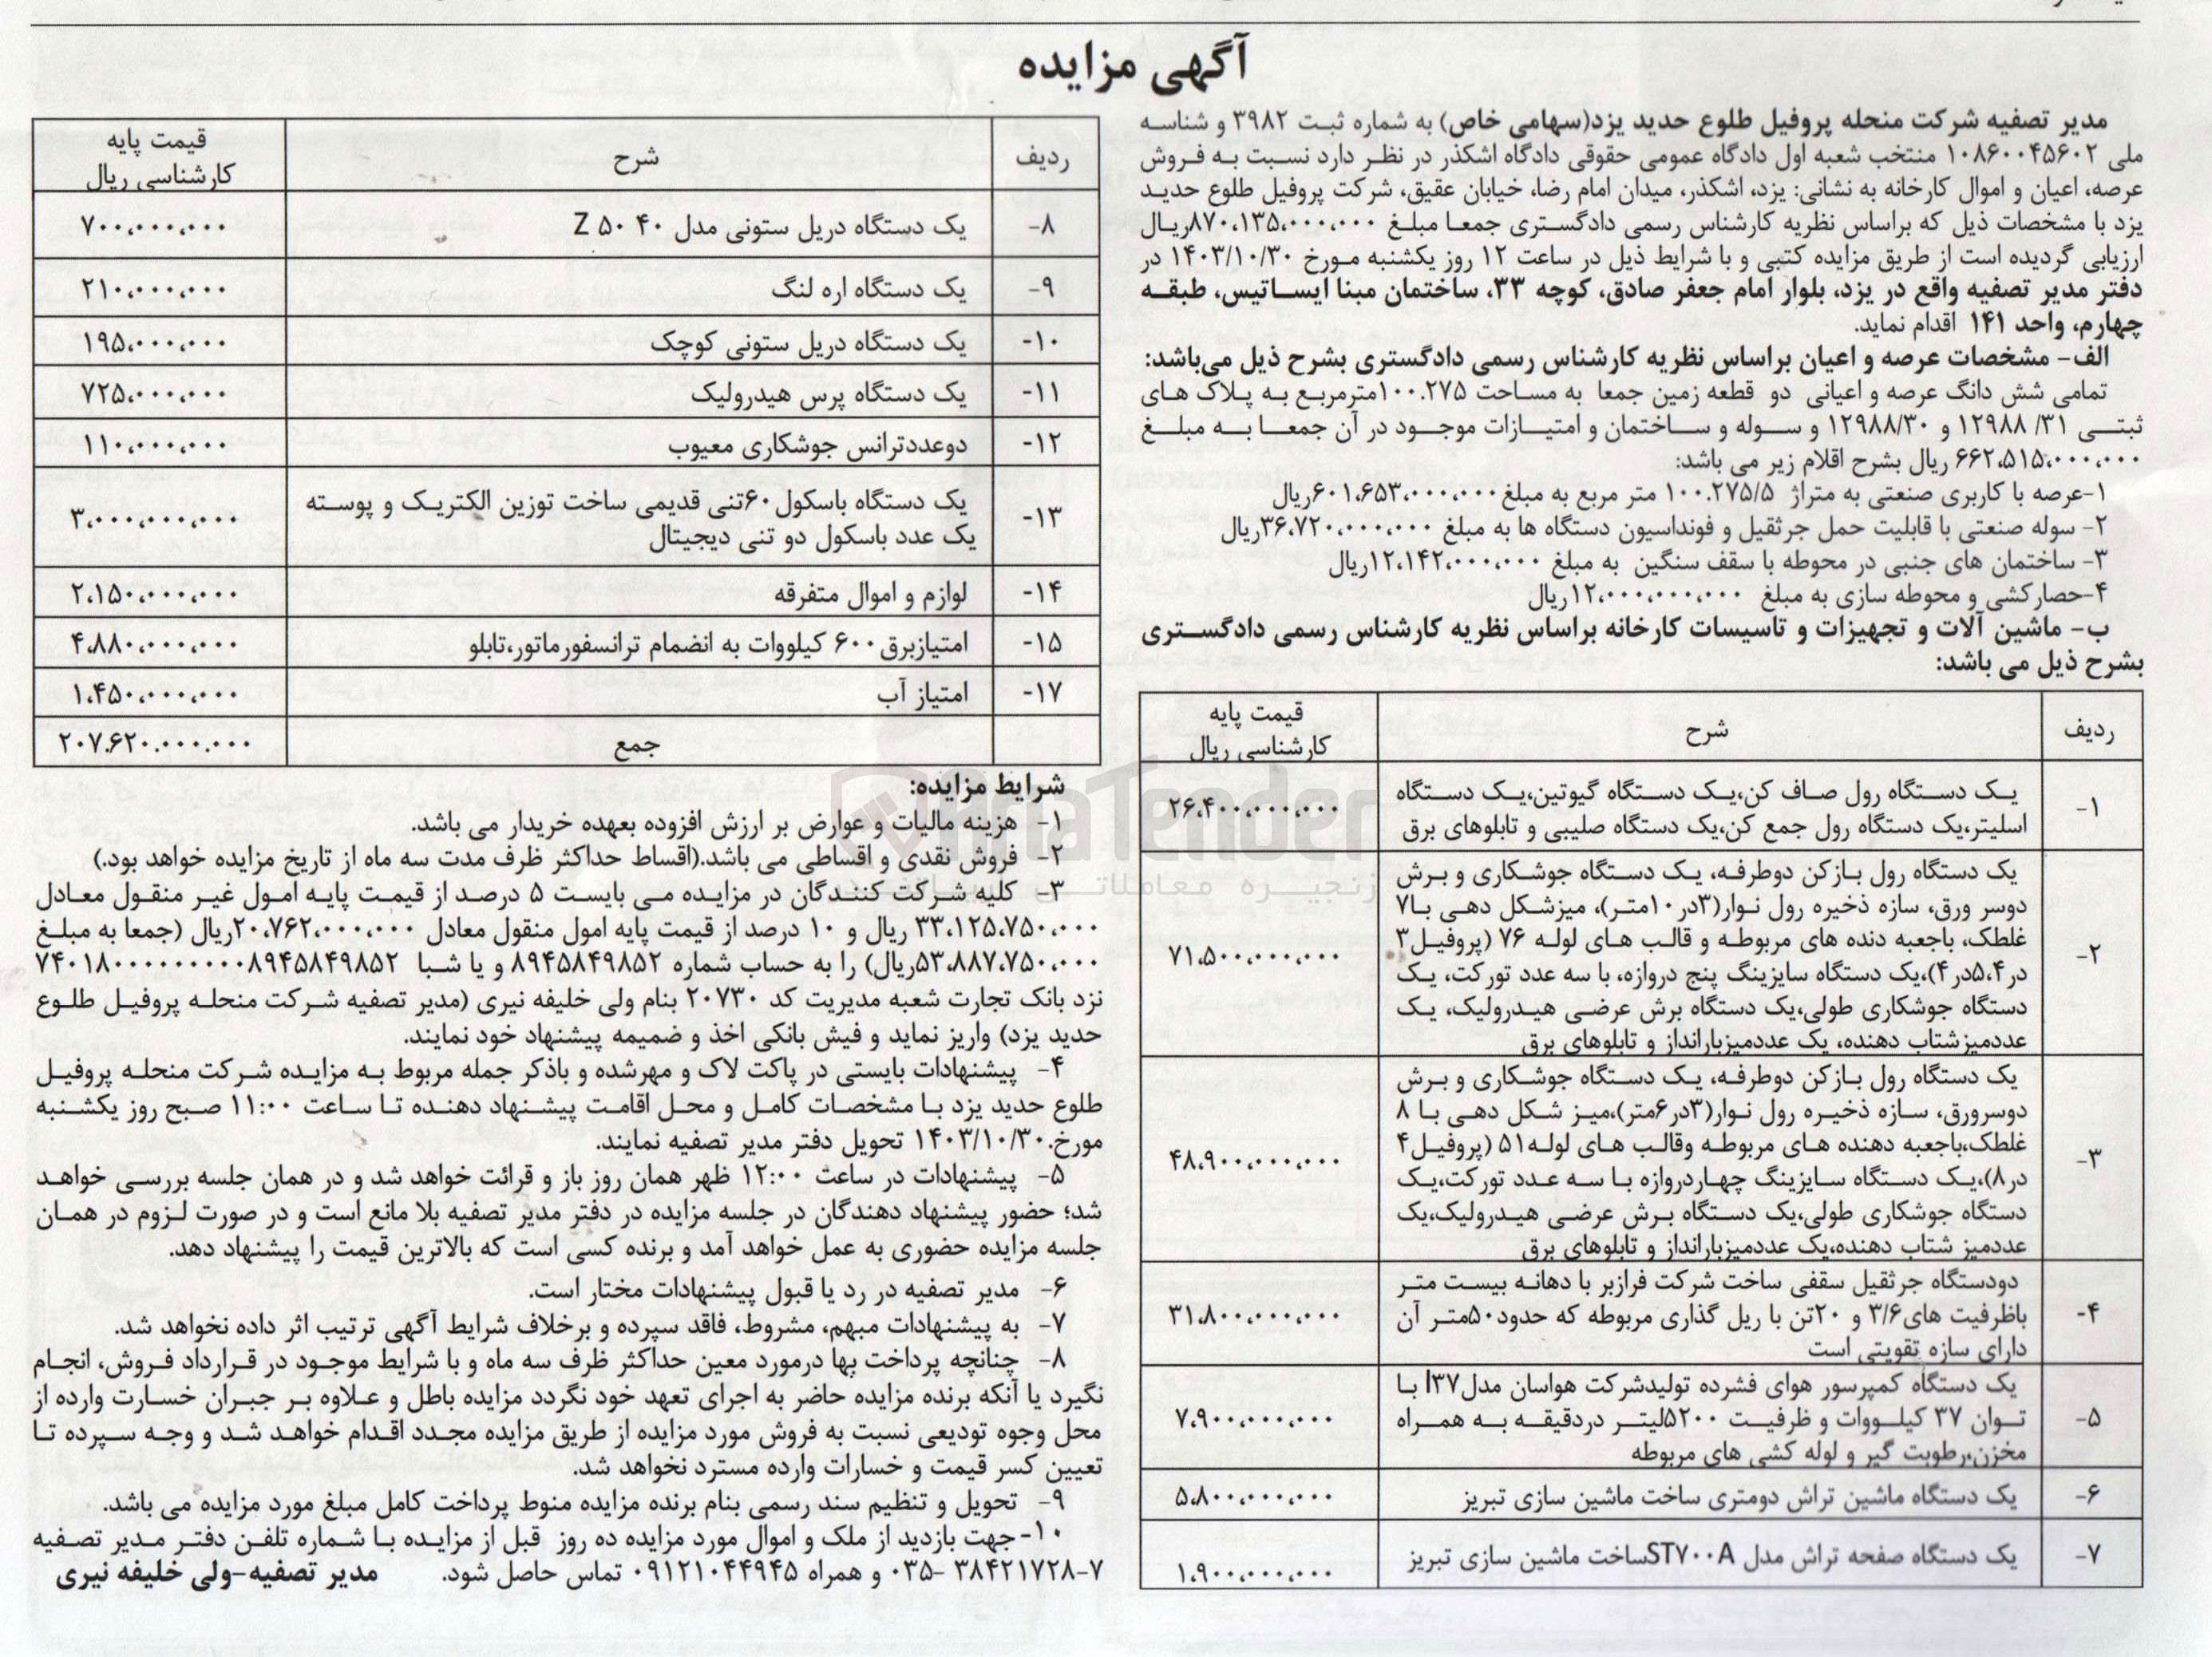 آگهی مزایده
مدیر تصفیه شرکت منحله پروفیل طلوع حدید یزد(سهامی خاص) به شماره ثبت ۳۹۸۲ و شناسه
ملی ۱۰۸۶۰۰۴۵۶۰۲ منتخب شعبه اول دادگاه عمومی حقوقی دادگاه اشکذر در نظر دارد نسبت به فروش
عرصه، اعیان و اموال کارخانه به نشانی: یزد، اشکذر، میدان امام رضا، خیابان عقیق، شرکت پروفیل طلوع حدید
یزد با مشخصات ذیل که براساس نظریه کارشناس رسمی دادگستری جمعا مبلغ ۸۷۰،۱۳۵،۰۰۰،۰۰۰ریال
ارزیابی گردیده است از طریق مزایده کتبی و با شرایط ذیل در ساعت ۱۲ روز یکشنبه مورخ ۱۴۰۳/۱۰/۳۰ در
دفتر مدیر تصفیه واقع در یزد، بلوار امام جعفر صادق، کوچه ۳۳، ساختمان مبنا ایساتیس، طبقه
چهارم، واحد ۱۴۱ اقدام نماید.
الف- مشخصات عرصه و اعیان براساس نظریه کارشناس رسمی دادگستری بشرح ذیل می‌باشد:
تمامی شش دانگ عرصه و اعیانی دو قطعه زمین جمعا به مساحت ۱۰۰.۲۷۵مترمربع به پلاک های
ثبتی ۳۱/ ۱۲۹۸۸ و ۱۲۹۸۸/۳۰ و سوله و ساختمان و امتیازات موجود در آن جمعا به مبلغ
۶۶۲،۵۱۵،۰۰۰،۰۰۰ ریال بشرح اقلام زیر می باشد:
۱-عرصه با کاربری صنعتی به متراژ ۱۰۰.۲۷۵/۵ متر مربع به مبلغ ۶۰۱،۶۵۳،۰۰۰،۰۰۰ریال
۲- سوله صنعتی با قابلیت حمل جرثقیل و فونداسیون دستگاه ها به مبلغ ۳۶،۷۲۰،۰۰۰،۰۰۰ریال
۳- ساختمان های جنبی در محوطه با سقف سنگین به مبلغ ۱۲،۱۴۲،۰۰۰،۰۰۰ریال
۴-حصارکشی و محوطه سازی به مبلغ ۱۲،۰۰۰،۰۰۰،۰۰۰ریال
ب- ماشین آلات و تجهیزات و تاسیسات کارخانه براساس نظریه کارشناس رسمی دادگستری
بشرح ذیل می باشد:
ردیف شرح قیمت پایه
کارشناسی ریال
۱- یک دستگاه رول صاف کن،یک دستگاه گیوتین،یک دستگاه
اسلیتر،یک دستگاه رول جمع کن،یک دستگاه صلیبی و تابلوهای برق ۲۶،۴۰۰،۰۰۰،۰۰۰
یک دستگاه رول بازکن دوطرفه، یک دستگاه جوشکاری و برش
دوسر ورق، سازه ذخیره رول نوار(۳در۱۰متر)، میزشکل دهی با۷
غلطک، باجعبه دنده های مربوطه و قالب های لوله ۷۶ (پروفیل۳
۲- در۵،۴در۴)،یک دستگاه سایزینگ پنج دروازه، با سه عدد تورکت، یک ۷۱،۵۰۰،۰۰۰،۰۰۰
دستگاه جوشکاری طولی،یک دستگاه برش عرضی هیدرولیک، یک
عددمیزشتاب دهنده، یک عددمیزبارانداز و تابلوهای برق
یک دستگاه رول بازکن دوطرفه، یک دستگاه جوشکاری و برش
دوسرورق، سازه ذخیره رول نوار(۳در۶متر)،میز شکل دهی با ۸
غلطک،باجعبه دهنده های مربوطه وقالب های لوله۵۱ (پروفیل۴
۳- در۸)،یک دستگاه سایزینگ چهاردروازه با سه عدد تورکت،یک ۴۸،۹۰۰،۰۰۰،۰۰۰
دستگاه جوشکاری طولی،یک دستگاه برش عرضی هیدرولیک،یک
عددمیز شتاب دهنده،یک عددمیزبارانداز و تابلوهای برق
دودستگاه جرثقیل سقفی ساخت شرکت فرازبر با دهانه بیست متر
۴- باظرفیت های۳/۶ و ۲۰تن با ریل گذاری مربوطه که حدود۵۰متر آن ۳۱،۸۰۰،۰۰۰،۰۰۰
دارای سازه تقویتی است
یک دستگاه کمپرسور هوای فشرده تولیدشرکت هواسان مدلI۳۷ با
۵- توان ۳۷ کیلووات و ظرفیت ۵۲۰۰لیتر دردقیقه به همراه ۷،۹۰۰،۰۰۰،۰۰۰
مخزن،رطوبت گیر و لوله کشی های مربوطه
۶- یک دستگاه ماشین تراش دومتری ساخت ماشین سازی تبریز ۵،۸۰۰،۰۰۰،۰۰۰
۷- یک دستگاه صفحه تراش مدل ST۷۰۰Aساخت ماشین سازی تبریز ۱،۹۰۰،۰۰۰،۰۰۰
ردیف شرح قیمت پایه
کارشناسی ریال
۸- یک دستگاه دریل ستونی مدل ۴۰ ۵۰ Z ۷۰۰،۰۰۰،۰۰۰
۹- یک دستگاه اره لنگ ۲۱۰،۰۰۰،۰۰۰
۱۰- یک دستگاه دریل ستونی کوچک ۱۹۵،۰۰۰،۰۰۰
۱۱- یک دستگاه پرس هیدرولیک ۷۲۵،۰۰۰،۰۰۰
۱۲- دوعددترانس جوشکاری معیوب ۱۱۰،۰۰۰،۰۰۰
۱۳- یک دستگاه باسکول۶۰تنی قدیمی ساخت توزین الکتریک و پوسته
یک عدد باسکول دو تنی دیجیتال ۳،۰۰۰،۰۰۰،۰۰۰
۱۴- لوازم و اموال متفرقه ۲،۱۵۰،۰۰۰،۰۰۰
۱۵- امتیازبرق۶۰۰ کیلووات به انضمام ترانسفورماتور،تابلو ۴،۸۸۰،۰۰۰،۰۰۰
۱۷- امتیاز آب ۱،۴۵۰،۰۰۰،۰۰۰
جمع ۲۰۷.۶۲۰.۰۰۰.۰۰۰
شرایط مزایده:
۱- هزینه مالیات و عوارض بر ارزش افزوده بعهده خریدار می باشد.
۲- فروش نقدی و اقساطی می باشد.(اقساط حداکثر ظرف مدت سه ماه از تاریخ مزایده خواهد بود.)
۳- کلیه شرکت کنندگان در مزایده می بایست ۵ درصد از قیمت پایه امول غیر منقول معادل
۳۳،۱۲۵،۷۵۰،۰۰۰ ریال و ۱۰ درصد از قیمت پایه امول منقول معادل ۲۰،۷۶۲،۰۰۰،۰۰۰ریال (جمعا به مبلغ
۵۳،۸۸۷،۷۵۰،۰۰۰ریال) را به حساب شماره ۸۹۴۵۸۴۹۸۵۲ و یا شبا ۷۴۰۱۸۰۰۰۰۰۰۰۰۰۰۸۹۴۵۸۴۹۸۵۲
نزد بانک تجارت شعبه مدیریت کد ۲۰۷۳۰ بنام ولی خلیفه نیری (مدیر تصفیه شرکت منحله پروفیل طلوع
حدید یزد) واریز نماید و فیش بانکی اخذ و ضمیمه پیشنهاد خود نمایند.
۴- پیشنهادات بایستی در پاکت لاک و مهرشده و باذکر جمله مربوط به مزایده شرکت منحله پروفیل
طلوع حدید یزد با مشخصات کامل و محل اقامت پیشنهاد دهنده تا ساعت ۱۱:۰۰ صبح روز یکشنبه
مورخ.۱۴۰۳/۱۰/۳۰ تحویل دفتر مدیر تصفیه نمایند.
۵- پیشنهادات در ساعت ۱۲:۰۰ ظهر همان روز باز و قرائت خواهد شد و در همان جلسه بررسی خواهد
شد؛ حضور پیشنهاد دهندگان در جلسه مزایده در دفتر مدیر تصفیه بلا مانع است و در صورت لزوم در همان
جلسه مزایده حضوری به عمل خواهد آمد و برنده کسی است که بالاترین قیمت را پیشنهاد دهد.
۶- مدیر تصفیه در رد یا قبول پیشنهادات مختار است.
۷- به پیشنهادات مبهم، مشروط، فاقد سپرده و برخلاف شرایط آگهی ترتیب اثر داده نخواهد شد.
۸- چنانچه پرداخت بها درمورد معین حداکثر ظرف سه ماه و با شرایط موجود در قرارداد فروش، انجام
نگیرد یا آنکه برنده مزایده حاضر به اجرای تعهد خود نگردد مزایده باطل و علاوه بر جبران خسارت وارده از
محل وجوه تودیعی نسبت به فروش مورد مزایده از طریق مزایده مجدد اقدام خواهد شد و وجه سپرده تا
تعیین کسر قیمت و خسارات وارده مسترد نخواهد شد.
۹- تحویل و تنظیم سند رسمی بنام برنده مزایده منوط پرداخت کامل مبلغ مورد مزایده می باشد.
۱۰-جهت بازدید از ملک و اموال مورد مزایده ده روز قبل از مزایده با شماره تلفن دفتر مدیر تصفیه
۳۸۴۲۱۷۲۸-۷ -۰۳۵ و همراه ۰۹۱۲۱۰۴۴۹۴۵ تماس حاصل شود. مدیر تصفیه-ولی خلیفه نیری
AriaTender